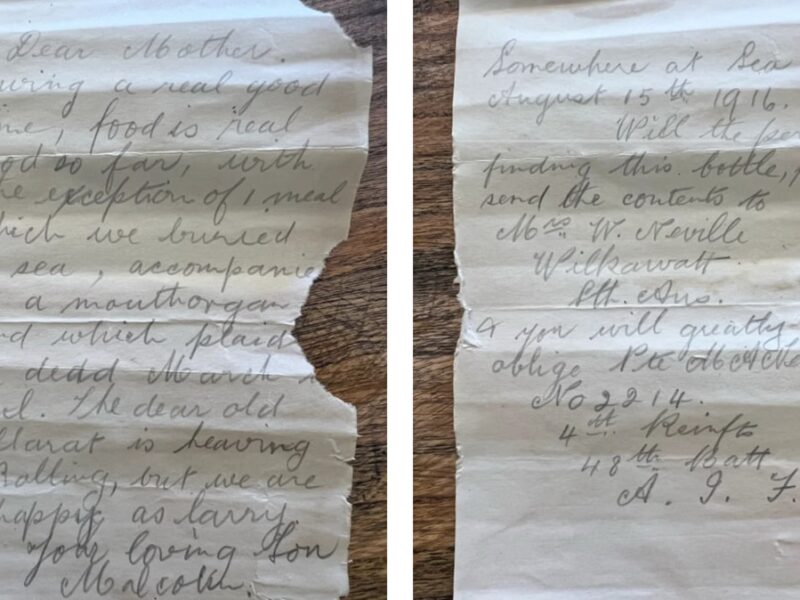 Dear Mother.
ving a real good
me, food is real
od so far, with
he exception of 1 meal
hich we buried
sea, accompanie
a mouthorgan
nd which plaid
dead March
l. The dear old
llarat is heaving
Rolling, but we are
happy as larry.
Your loving Son
Malcolm.
Somewhere at Sea
August 15th 1916.
Will the per
finding this bottle,
send the contents to
Mrs W. Neville
Wilkawatt
Sth. Aus.
& you will greatly
oblige Pte M A Ne
No 2214.
4th Reinfts
48th Batt
A. I. F.